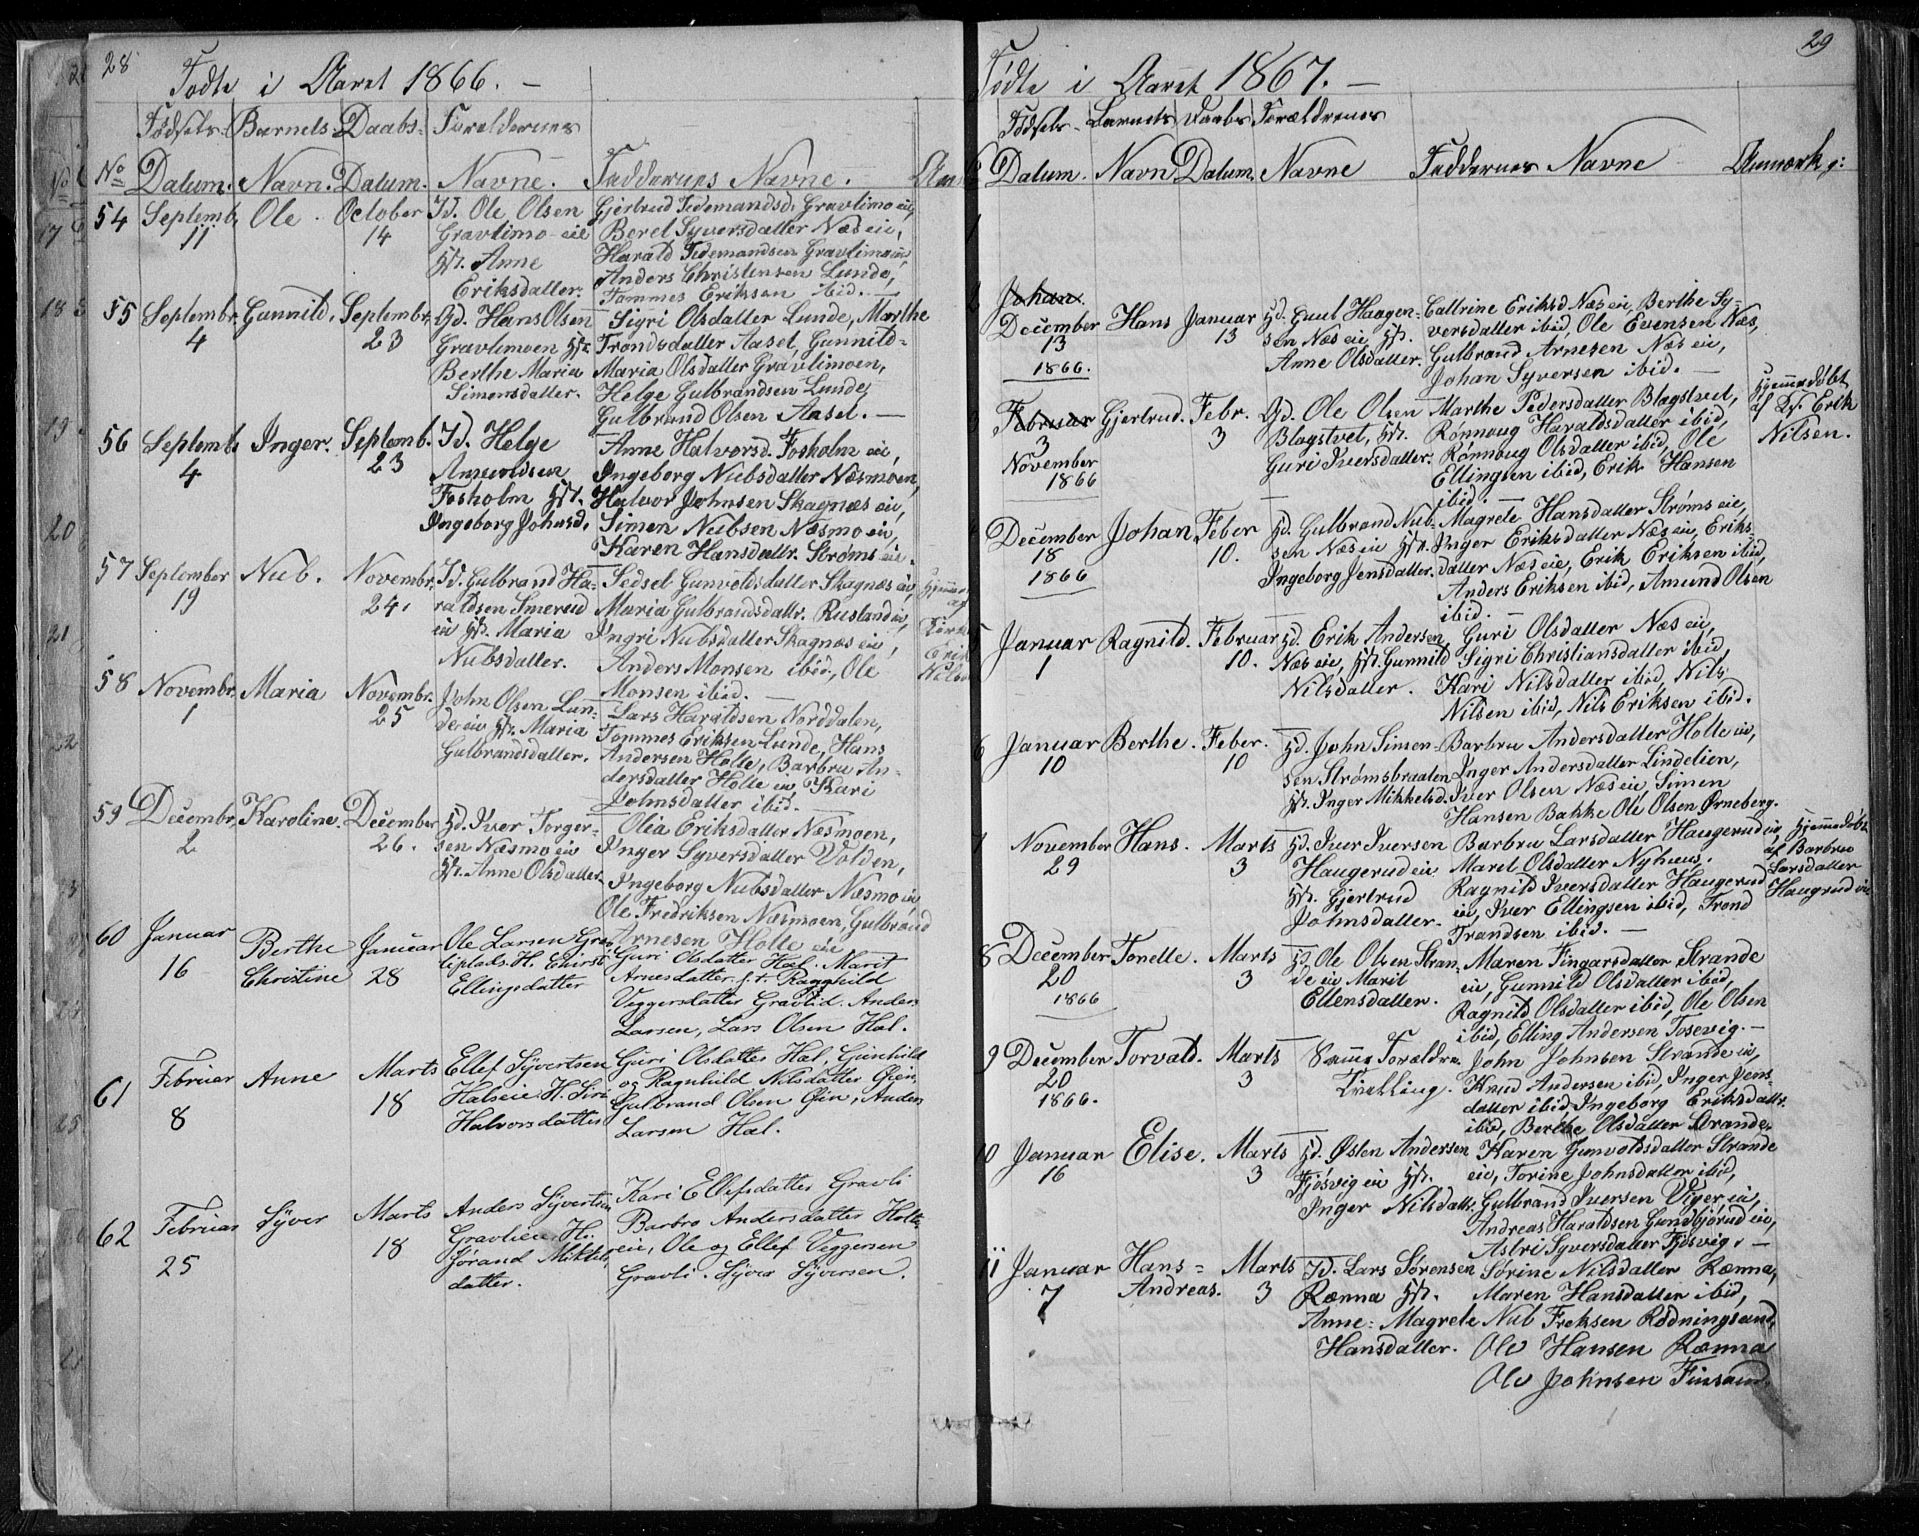 28
Fødte i Aaret 1866. —
Fødsels- Barnets Daabs- Foreldrenes
No Datum. Navn. Datum. Navne. Faddernes Navne.
54 Septemb. 11 Ole October 14
Id. Ole Olsen
Gravlimo-eie
Hst. Anne
Eriksdatter.
Gjertrud Tedemandsd. Gravlimo eie,
Beret Syversdatter Næs eie,
Harald Tedemandsen Gravlimoeie
Anders Christensen Lunde,
Tommes Eriksen ibid. —
55 Septembr. 4 Gunnild. Septembr. 23
Gd. Hans Olsen
Gravlimoen Hst.
Berthe Maria
Simensdatter.
Sigri Olsdatter Lunde, Marthe
Trondsdatter Aasel, Gunnild-
Maria Olsdatter Gravlimoen,
Helge Gulbrandsen Lunde,
Gulbrand Olsen Aasel. —
56 Septemb. 4 Inger. Septemb. 23
Id. Helge
Amundsen
Fosholm Hst.
Ingeborg Johnsd.
Anne Halvorsd. Fosholm eie,
Ingeborg Nubsdatter Næsmoen,
Halvor Johnsen Skagnæs eie,
Simen Nubsen Næsmo eie,
Karen Hansdattr. Strøms eie.
57 September 19 Nub. Novembr. 24.
Id. Gulbrand Ha-
raldsen Smerud
eie Hst. Maria
Nubsdatter.
Sedsel Gunvoldsdatter Skagnæs eie,
Maria Gulbrandsdattr. Rusland eie,
Ingri Nubsdatter Skagnæs eie,
Anders Monsen ibid, Ole
Monsen ibid. —
58 Novembr. 1 Maria Novembr. 25
John Olsen Lun-
de eie Hst. Maria
Gulbrandsdatter.
Lars Haraldsen Norddalen,
Tommes Eriksen Lunde, Hans
Andersen Holte, Barbru An-
dersdatter Holte eie, Kari
Johnsdatter ibid. —
59 Decembr. 2 Karoline. December 26.
Hd. Iver Torger-
sen Næsmo eie
Hst. Anne Olsdatter
Olia Eriksdatter Næsmoen,
Inger Syversdatter Volden,
Ingeborg Nubsdatter Næsmo eie
Ole Fredriksen Næsmoen, Gulbrand
Arnesen Holte eie
60 Januar 16 Berthe Christine Januar 28
Ole Larsen Grav
liplads. H. Chirsti
Ellingsdatter
Guri Olsdatter Hæl. Marit
Arnesdatter f.t. Ragnhild
Veggersdatter Gravlid. Anders
Larsen, Lars Olsen Hæl.
61 Februar 8 Anne Marts 18
Ellef Syvertsen
Halseie. H. Siri
Halvorsdatter
Guri Olsdatter Hæl, Gunhild
og Ragnhild Nilsdatter Øien,
Gulbrand Olsen Øin, Anders
Larsen Hæl.
62 Februar 25 Syver Marts 18
Anders Syvertsen
Gravlieie H.
Jørand Mikkels
datter.
Kari Ellefsdatter Gravli
Barbro Andersdatter Holte
eie, Ole og Ellef Veggersen
Gravli. Syver Syversen.
29
Fødte i Aaret 1867. —
Fødsels- Barnets Daabs Forældrenes
Datum. Navn Datum. Navne Faddernes Navne Anmærkg:
1
2 Johan.
December 13 1866. Hans Januar 13
Hd. Guul Haagen-
sen Næs eie Hst.
Anne Olsdatter.
Cattrine Eriksd Næs eie, Berthe Sy-
versdatter ibid, Ole Evensen Næs,
Gulbrand Arnesen Næs eie,
Johan Syversen ibid. —
3 Februar 3 November 1866 Gjertrud. Febr. 3
Gd. Ole Olsen
Blagstvet, Hst.
Guri Iversdatter.
Marthe Pedersdatter Blagstvet,
Rønnoug Haraldsdatter ibid,
Rønnoug Olsdatter ibid, Ole
Ellingsen ibid, Erik Hansen
ibid. —
Hjemmedøbt
af Erik
Nilsen.
4 December 18 1866 Johan Feber 10.
Hd. Gulbrand Nub-
sen Næs eie Hst.
Ingeborg Jensdatter.
Magrete Hansdatter Strøms eie,
Inger Eriksdatter Næs eie, Eriks-
datter Næs eie, Erik Eriksen ibid,
Anders Eriksen ibid, Amund Olsen
ibid. —
5 Januar 1 Ragnild. Februar 10.
Hd. Erik Andersen
Næs eie, Hst. Gunnild
Nilsdatter.
Guri Olsdatter Næs eie,
Sigri Christiansdatter ibid,
Kari Nilsdatter ibid, Nils
Nilsen ibid, Nils Eriksen ibid.
6 Januar 10 Berthe. Feber. 10
Hd. John Simen-
sen Strømsbraaten
Hst. Inger Mikkelsd.
Barbru Andersdatter Holte eie,
Inger Andersdatter Lindelien,
Iver Olsen Næs eie, Simen
Hansen Bakke Ole Olsen Ørneberg.
November 29 Hans. Marts 3
Hd. Iver Iversen
Haugerud eie
Hst. Gjertrud
Johnsdatter.
Barbru Larsdatter Haugerud eie,
Maret Olsdatter Nyhuus,
Ragnild Iversdatter Haugerud
eie, Iver Ellingsen ibid, Trond
Trondsen ibid. —
Hjemmedøbt
af Barbru
Larsdatter
Haugrud eie
8 December 20 1866 Tonette. Marts 3
Hd. Ole Olsen Stran-
de eie Marit
Ellensdatter.
Maren Fingarsdatter Strande
eie, Gunnild Olsdatter ibid,
Ragnild Olsdatter ibid, Ole Olsen
ibid, Elling Andersen Tosevig. —
9 December 20 1866. Torvald. Marts 3
Samme Forældre.
Tvilling.
John Johnsen Strande eie,
Knud Andersen ibid, Inger Jens-
datter ibid, Ingeborg Eriksdattr.
ibid, Berthe Olsdatter Strande.
10 Januar 16 Elise. Marts 3
Hd. Østen Andersen
Fjøsvig eie Hst.
Inger Nilsdattr.
Karen Gunvoldsdatter Strande
eie, Torine Johnsdatter ibid,
Gulbrand Iversen Viger eie,
Andreas Haraldsen Gundbjørud eie,
Astri Syversdatter Fjøsvig. —
11 Januar 7 Hans= Andreas. Marts 3
Id. Lars Sørensen
Rænna Hst.
Anne-Magrete
Hansdatter.
Sørine Nilsdatter Rænna,
Maren Hansdatter ibid,
Nub Freksen Rødningsand,
Ole Hansen Rænna
Ole Johnsen Finsand.